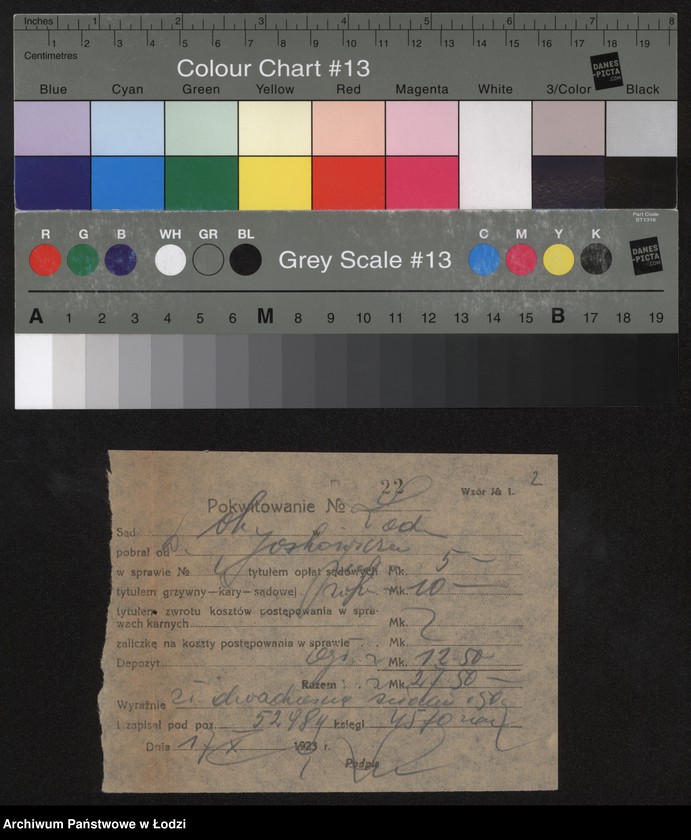 Inches 1 2 3 4 5 6 7 8
1 2 3 4 5 6 7 8 9 10 11 12 13 14 15 16 17 18 19
Centimetres
Colour Chart #13
DANES-PICTA.COM
Blue Cyan Green Yellow Red Magenta White 3/Color Black
Part Code
ST1316
R G B WH GR BL Grey Scale #13 C M Y K
DANES-PICTA.COM
A 1 2 3 4 5 6 M 8 9 10 11 12 13 14 15 B 17 18 19
2
Wzór № 1.
22
Pokwitowanie №
Sąd
pobrał od
w sprawie № tytułem opłat sądowych Mk. 5 —
tytułem grzywny—kary—sądowej Mk. 10 —
tytułem zwrotu kosztów postępowania w spra-
wach karnych Mk.
zaliczkę na koszty postępowania w sprawie Mk.
Depozyt Mk. 12.50
Razem Mk. 27.50 —
Wyraźnie dwadzieścia siedem
i zapisał pod poz. 52984 księgi
Dnia 1923 r.
Podpis
Archiwum Państwowe w Łodzi